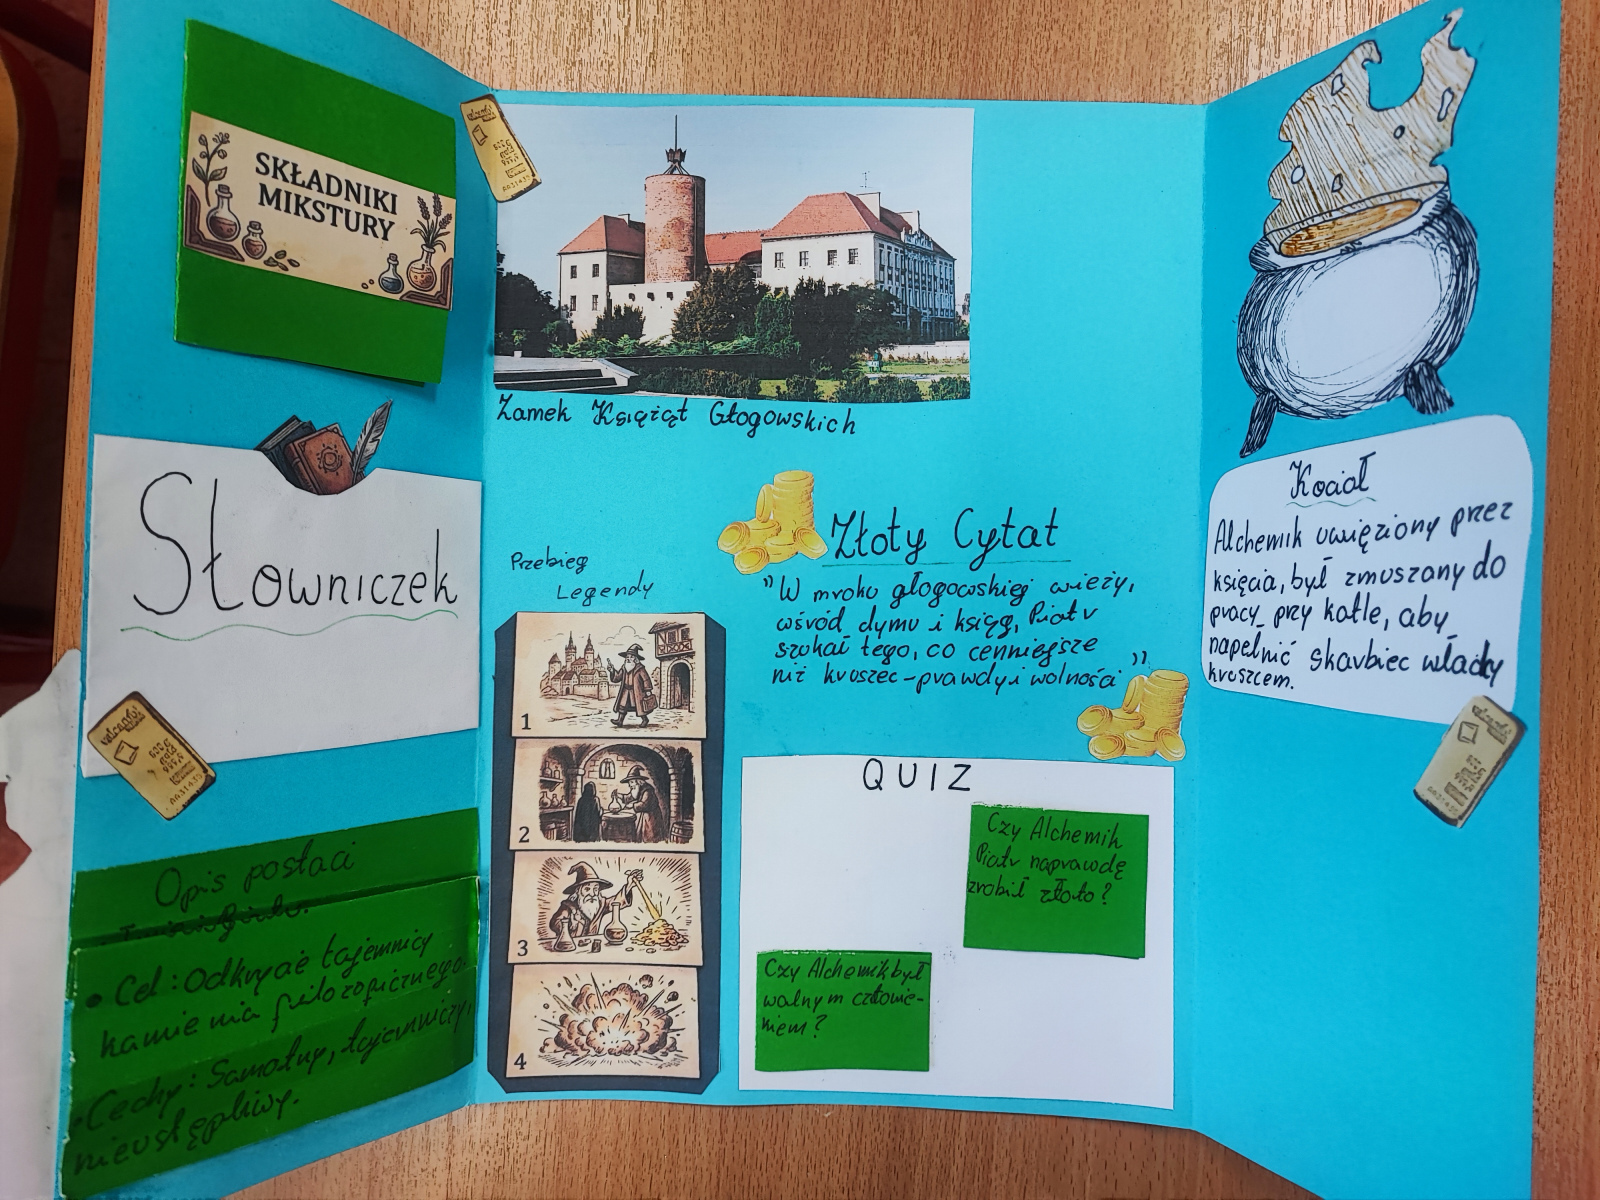 SKŁADNIKI
MIKSTURY
Słowniczek
Opis postaci
• Cel: Odkryć tajemnicy
kamienia filozoficznego.
• Cechy: Samotny, tajemniczy,
nieustępliwy.
Zamek Książąt Głogowskich
Przebieg
Legendy
1
2
3
4
Złoty Cytat
"W mroku głogowskiej wieży,
wśród dymu i ksiąg, Piotr
szukał tego, co cenniejsze
niż kruszec-prawdy i wolności"
QUIZ
Czy Alchemik
Piotr naprawdę
zrobił złoto?
Czy Alchemik był
wolnym człowie-
kiem?
Kocioł
Alchemik uwięziony przez
księcia, był zmuszany do
pracy przy kotle, aby
napełnić skarbiec władcy
kruszcem.